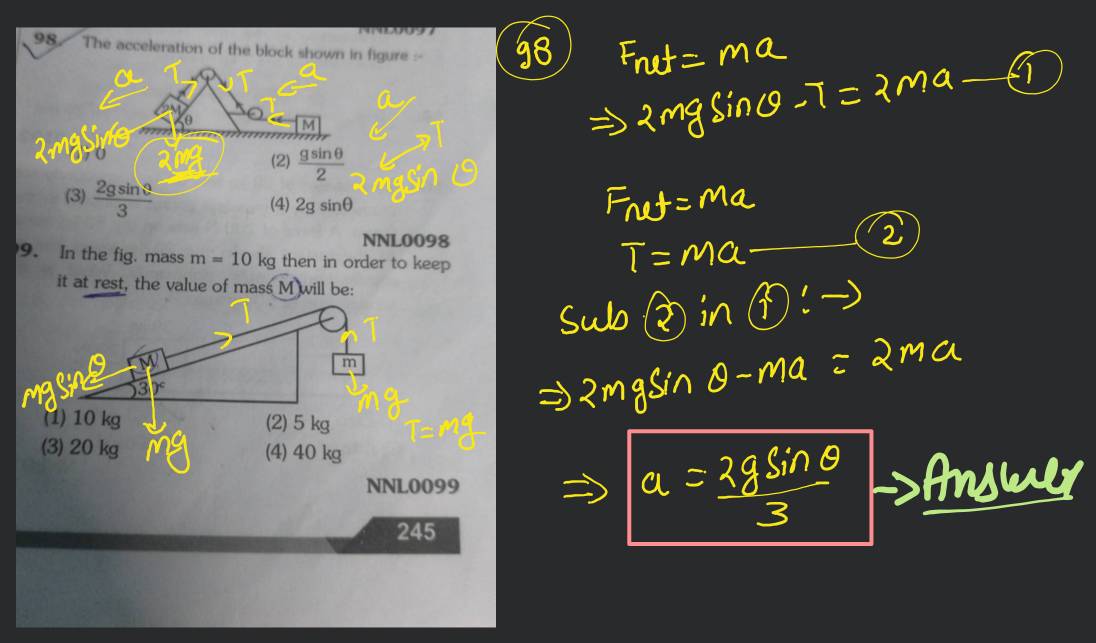 98. The acceleration of the block shown in figure :-
a T T a
T
2M θ M
2mg sinθ
2mg
a
T
2mg sin θ
(2) g sinθ / 2
(3) 2g sinθ / 3
(4) 2g sinθ
NNL0098
9. In the fig. mass m = 10 kg then in order to keep
it at rest, the value of mass M will be:
T
T
mg sinθ M m
30°
mg mg
T = mg
(1) 10 kg (2) 5 kg
(3) 20 kg (4) 40 kg
NNL0099
245
98
Fnet = ma
⇒ 2mg sinθ - T = 2ma — 1
Fnet = ma
T = ma — 2
Sub 2 in 1 : →
⇒ 2mg sin θ - ma = 2ma
⇒ a = 2g sin θ / 3 → Answer